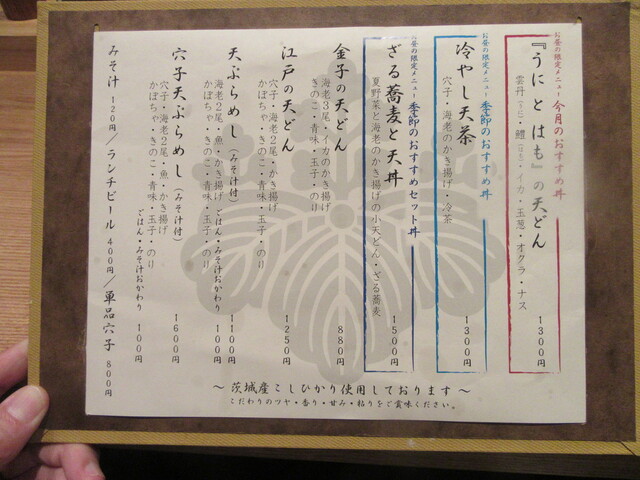 お昼の限定メニュー 今月のおすすめ丼
『うにとはも』の天どん
雲丹(うに)・鱧(はも)・イカ・玉葱・オクラ・ナス
1300円
お昼の限定メニュー 季節のおすすめ丼
冷やし天茶
穴子・海老のかき揚げ・冷茶
1300円
お昼の限定メニュー 季節のおすすめセット丼
ざる蕎麦と天丼
夏野菜と海老のかき揚げの小天どん・ざる蕎麦
1500円
金子の天どん
海老3尾・イカのかき揚げ
きのこ・青味・玉子・のり
880円
江戸の天どん
穴子・海老2尾・かき揚げ
かぼちゃ・きのこ・青味・玉子・のり
1250円
天ぷらめし(みそ汁付)
海老2尾・魚・かき揚げ
かぼちゃ・きのこ・青味・玉子・のり
1100円
ごはん・みそ汁おかわり 100円
穴子天ぷらめし(みそ汁付)
穴子・海老2尾・魚・かき揚げ
かぼちゃ・きのこ・青味・玉子・のり
1600円
ごはん・みそ汁おかわり 100円
みそ汁 120円/ランチビール 400円/単品穴子 800円
〜 茨城産こしひかり使用しております 〜
こだわりのツヤ・香り・甘み・粘りをご賞味ください。